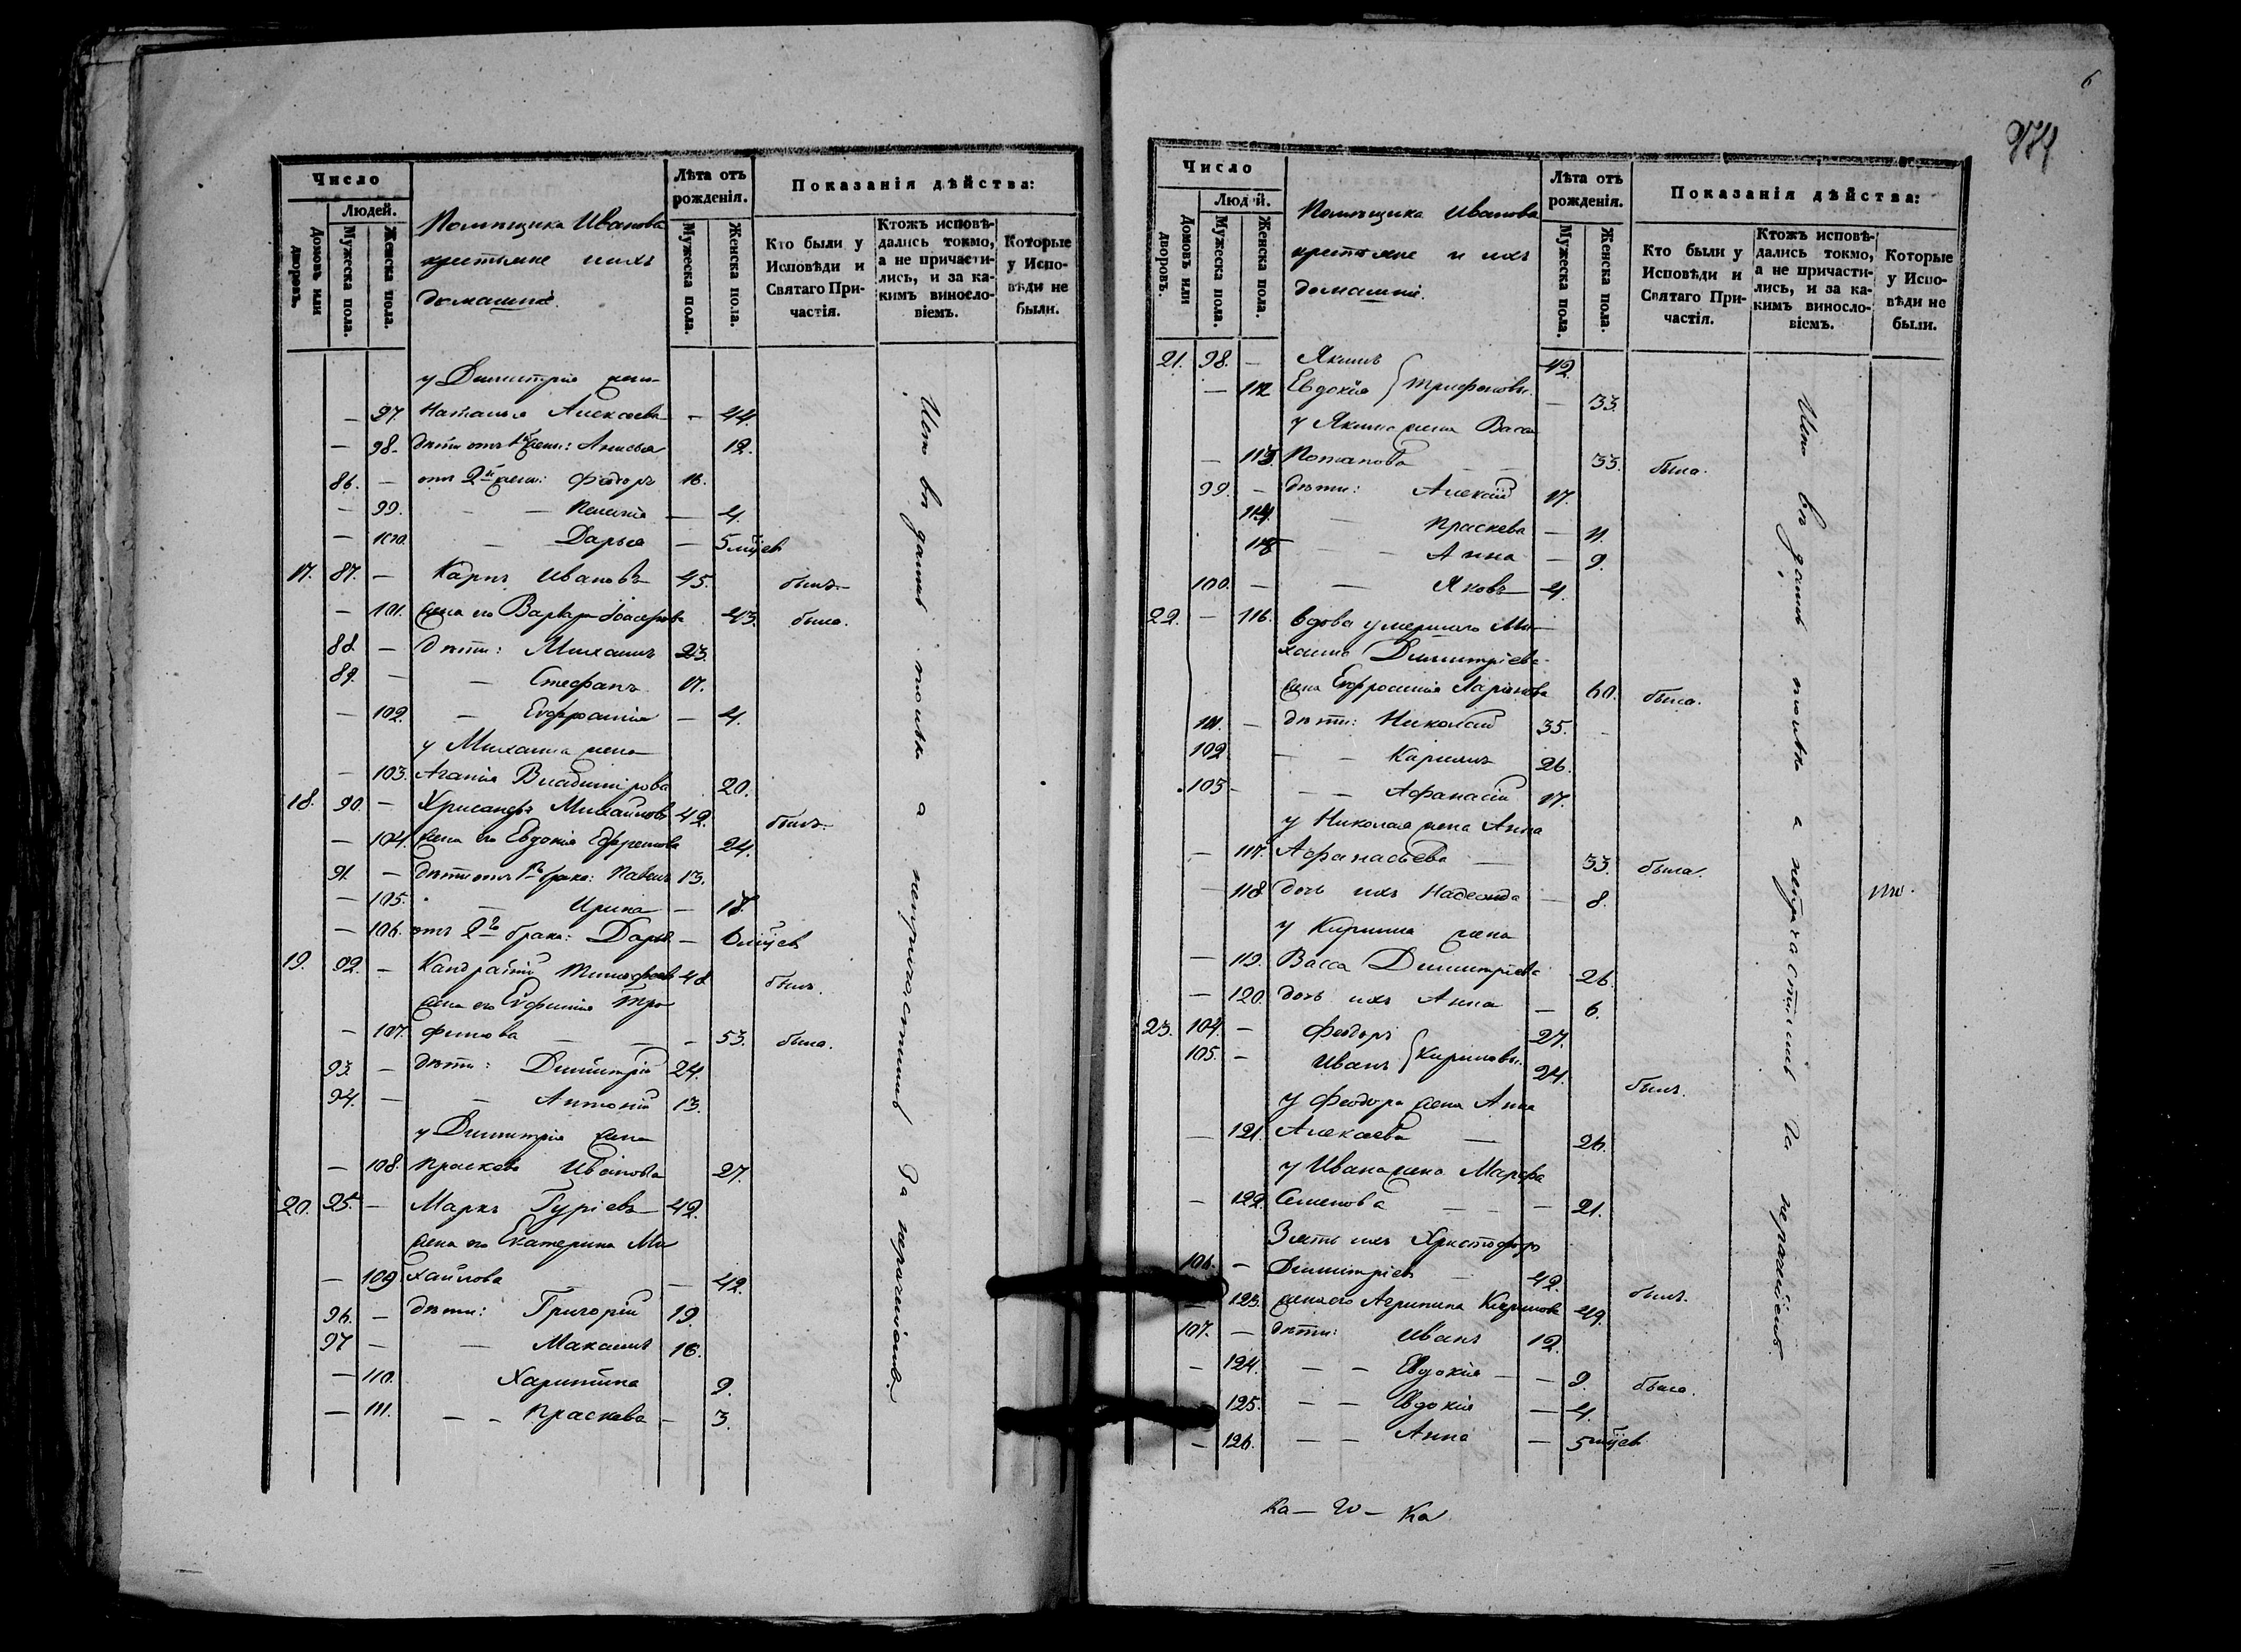 Число
Людей.
Домовъ или дворовъ.
Мужеска пола.
Женска пола.
Помѣщика Иванова
крестьяне и ихъ
домашніе.
Лѣта отъ рожденія.
Мужеска пола.
Женска пола.
Показанія дѣйства:
Кто были у Исповѣди и Святаго Причастія.
Ктожъ исповѣдались токмо, а не причастились, и за какимъ винословіемъ.
Которые у Исповѣди не были.
у Димитрія жена
— 97. Наталья Алексеева — 44.
— 98. дѣти отъ 1й жены: Анисья 12.
86. — отъ 2й жены: Феодоръ 16.
— 99. — — Пелагія — 4.
— 100. — — Дарья — 5 мцевъ
17. 87. — Карпъ Ивановъ 45. былъ.
— 101. жена его Варвара 43. была.
88. — дѣти: Михаилъ 23.
89. — — Стефанъ 17.
— 102. — Евфросинія — 4.
у Михаила жена
— 103. Агапія Владимірова 20.
18. 90. — Хрисанфъ Михайловъ 42. былъ.
— 104. жена его Евдокія Ефремова 24.
91. — дѣти отъ 1го брака: Павелъ 13.
— 105. — Ирина — 18.
— 106. отъ 2го брака: Дарья — 6 мцевъ
19. 92. — Кандратій Тимофеевъ 48. былъ.
жена его Евфимія Тро-
— 107. фимова — — — 53. была.
93. — дѣти: Димитрій 24.
94. — — Антоній 13.
у Димитрія жена
— 108. Праскева Иванова 27.
20. 95. — Маркъ Гуріевъ 42.
жена его Екатерина Ми
— 109. хайлова — 42.
96. — дѣти: Григорій 19.
97 — — Макаилъ 16.
— 110. Харитина 9.
— 111. — — Праскева — 3.
Исповѣдались только а непричастились за нераченіемъ
6
974
Число
Людей.
Домовъ или дворовъ.
Мужеска пола.
Женска пола.
Помѣщика Иванова
крестьяне и ихъ
домашніе.
Лѣта отъ рожденія.
Мужеска пола.
Женска пола.
Показанія дѣйства:
Кто были у Исповѣди и Святаго Причастія.
Ктожъ исповѣдались токмо, а не причастились, и за какимъ винословіемъ.
Которые у Исповѣди не были.
21. 98. — Якимъ 42.
— 112 Евдокія } Трифоновы. — 33.
у Якима жена Васса
— 113. Потапова — — 33. была.
99. — дѣти: Алексій 17.
114. — Праскева — 11.
115 — — Анна — 9.
100. — — Яковъ — 4.
22. — 116. вдова умершаго Ми-
хаила Димитріева
жена Евфросинія Ларіонова 60. была.
101. — дѣти: Николай 35.
102 — — Кирилъ 26.
103 — — — Афанасій 17.
у Николая жена Анна
— 117. Афанасьева — 33. была.
— 118. дочь ихъ Надежда — 8.
у Кирилла жена
— 119. Васса Димитріева 26.
— 120. дочь ихъ Анна — 6.
23. 104. — Феодоръ 27.
105. — Иванъ } Кириловы. 24. былъ.
у Феодора жена Анна
— 121. Алексеева — 26.
у Ивана жена Марфа
— 122. Семенова — — — 21.
Зять ихъ Христофоръ
106. — Димитріевъ — 42. былъ.
— 123. жена его Агрипина Кирилова 49.
107. — дѣти: Иванъ 12.
— 124. — — Евдокія — — 9. была.
125. — — Евдокія — 4.
— 126. — — Анна — 5 мцевъ
Исповѣдались только а непричастились за нераченіемъ